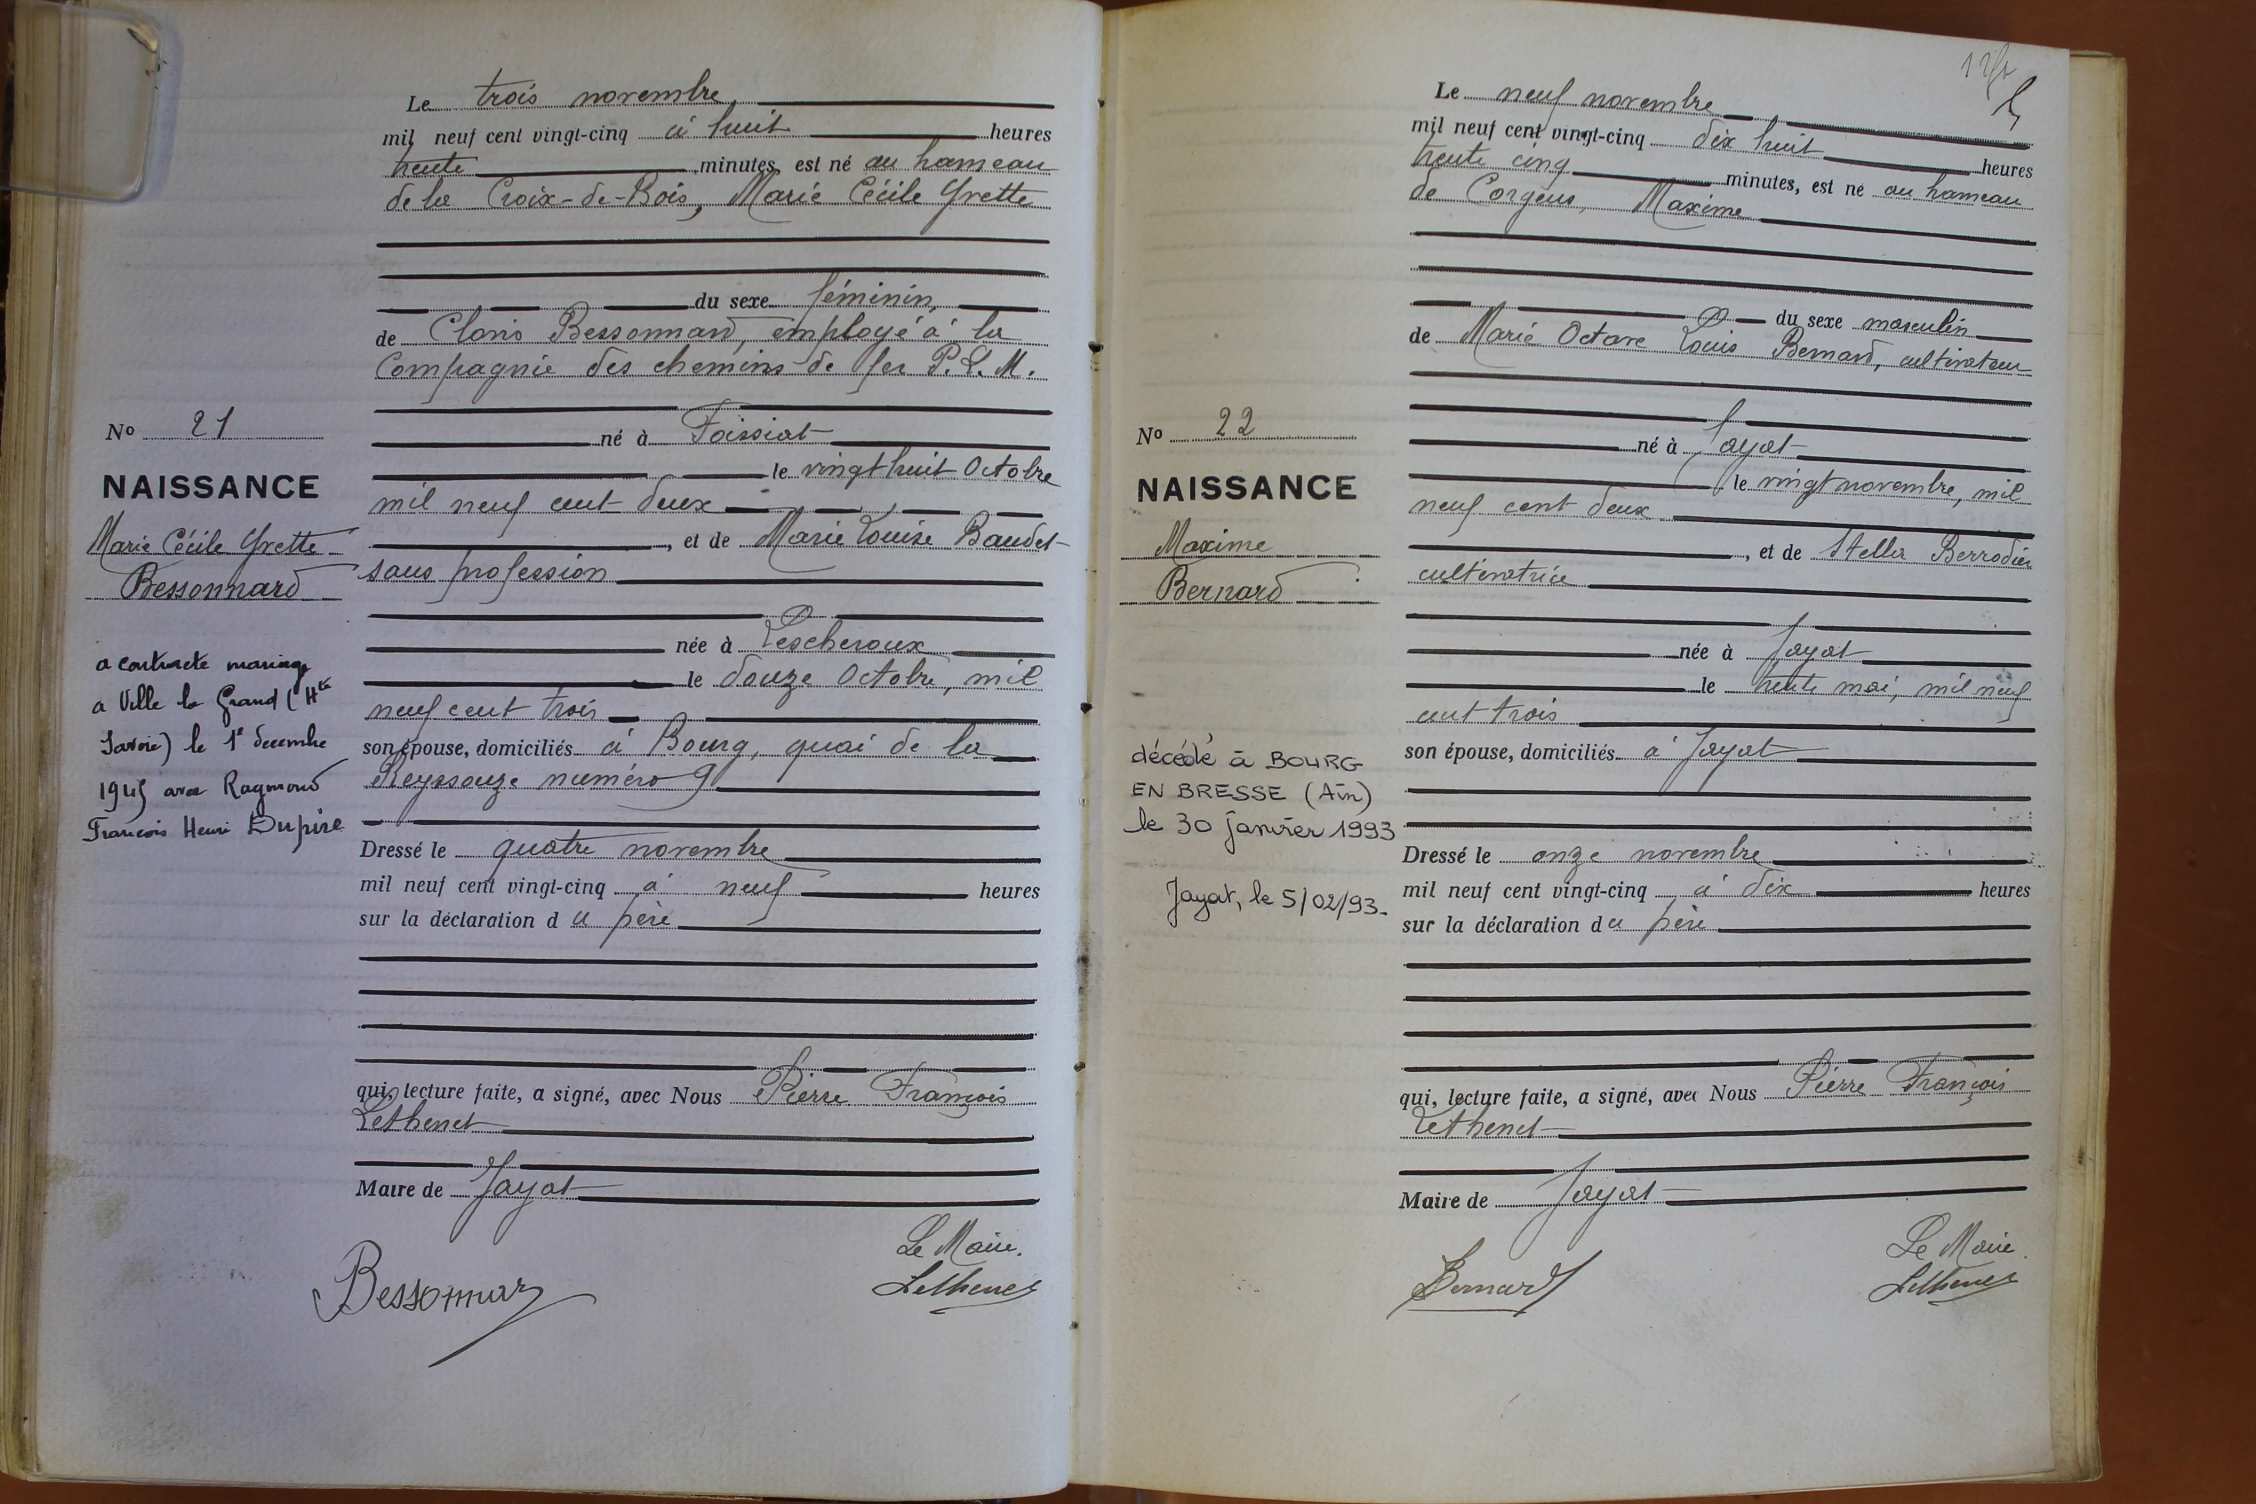 Le trois novembre
mil neuf cent vingt-cinq à huit heures
trente minutes, est né au hameau
de la Croix-de-Bois, Marie Cécile Yvette
du sexe féminin
de Clovis Bessonnard, employé à la
Compagnie des chemins de fer P.L.M.
né à Foissiat
le vingt huit Octobre
mil neuf cent deux
, et de Marie Louise Baudet
sans profession
née à Lescheroux
le douze Octobre, mil
neuf cent trois
son épouse, domiciliés à Bourg, quai de la
Reyssouze numéro 9
Dressé le quatre novembre
mil neuf cent vingt-cinq à neuf heures
sur la déclaration du père
qui, lecture faite, a signé, avec Nous Pierre François
Lethenet
Maire de Jayat
Le Maire.
Bessonnard
Lethenet
No 21
NAISSANCE
Marie Cécile Yvette
Bessonnard
a contracté mariage
a Ville la Grand (Hte
Savoie) le 1e decembre
1945 avec Raymond
Francois Henri Dupire
Le neuf novembre
mil neuf cent vingt-cinq dix huit heures
trente cinq minutes, est né au hameau
de Corgeus, Maxime
du sexe masculin
de Marie Octave Louis Bernard, cultivateur
né à Jayat
le vingt novembre, mil
neuf cent deux
, et de Stella Berrodier
cultivatrice
née à Jayat
le trente mai, mil neuf
cent trois
son épouse, domiciliés à Jayat
Dressé le onze novembre
mil neuf cent vingt-cinq à dix heures
sur la déclaration du père
qui, lecture faite, a signé, avec Nous Pierre François
Lethenet
Maire de Jayat
Le Maire.
Bernard
Lethenet
No 22
NAISSANCE
Maxime
Bernard
décédé à BOURG
EN BRESSE (Ain)
le 30 janvier 1993
Jayat, le 5/02/93.